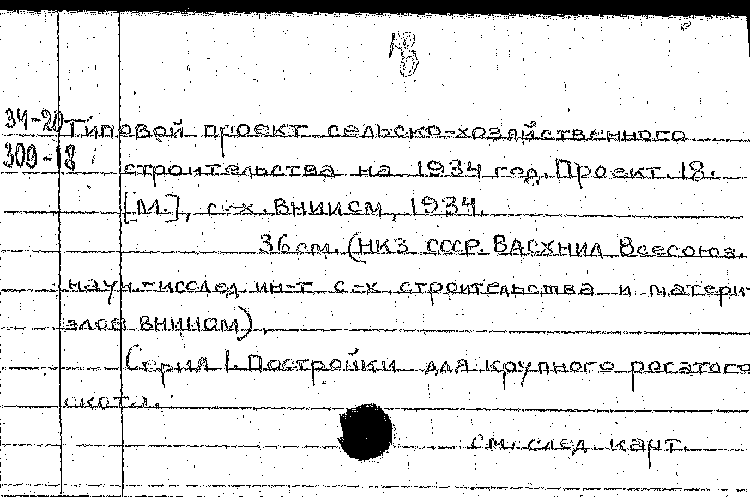 18
34-20
300-18
Типовой проект сельско-хозяйственного
строительства на 1934 год. Проект 18.
[М.], с.-х. ВНИИСМ, 1934.
36 см. (НКЗ СССР. ВАСХНИЛ Всесоюз.
науч.-исслед. ин-т с-х строительства и матери-
алов ВНИИСМ).
Серия 1. Постройки для крупного рогатого
скота.
см. след. карт.